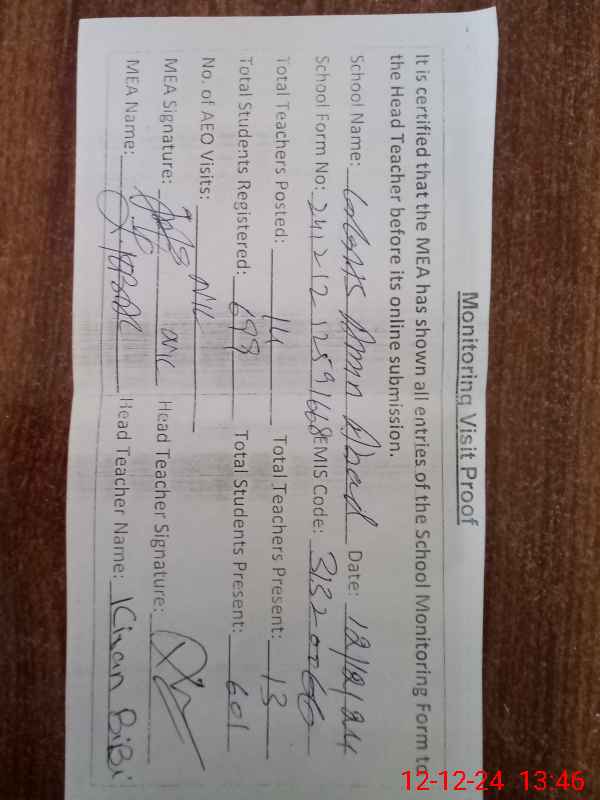 Monitoring Visit Proof
It is certified that the MEA has shown all entries of the School Monitoring Form to
the Head Teacher before its online submission.
School Name: Amin Abad Date: 12/12/24
School Form No: EMIS Code:
Total Teachers Posted: 14 Total Teachers Present: 13
Total Students Registered: 699 Total Students Present: 601
No. of AEO Visits: Nil
MEA Signature: Head Teacher Signature:
MEA Name: Head Teacher Name: Kiran BiBi
12-12-24 13:46